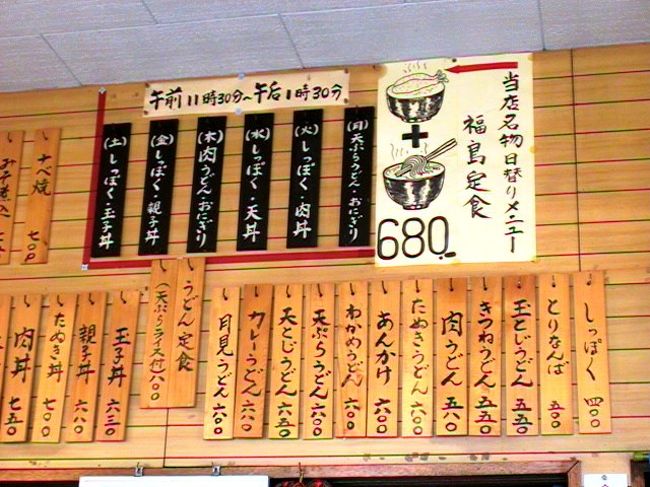 当店名物日替りメニュー
福島定食
+
680
午前11時30分~午后1時30分
(月)天ぷらうどん・おにぎり
(火)しっぽく・肉丼
(水)しっぽく・天丼
(木)肉うどん・おにぎり
(金)しっぽく・親子丼
(土)しっぽく・玉子丼
ナベ焼 七〇〇
みそ煮込
しっぽく 四〇〇
とりなんば 五五〇
玉とじうどん 五五〇
きつねうどん 五五〇
肉うどん 五五〇
たぬきうどん 六〇〇
あんかけ 六〇〇
わかめうどん 六五〇
天ぷらうどん 六五〇
天とじうどん 六五〇
カレーうどん 六〇〇
月見うどん 六〇〇
うどん定食
(天ぷらライス付)八〇〇
玉子丼 六三〇
親子丼 六八〇
たぬき丼 七五〇
肉丼 七五〇